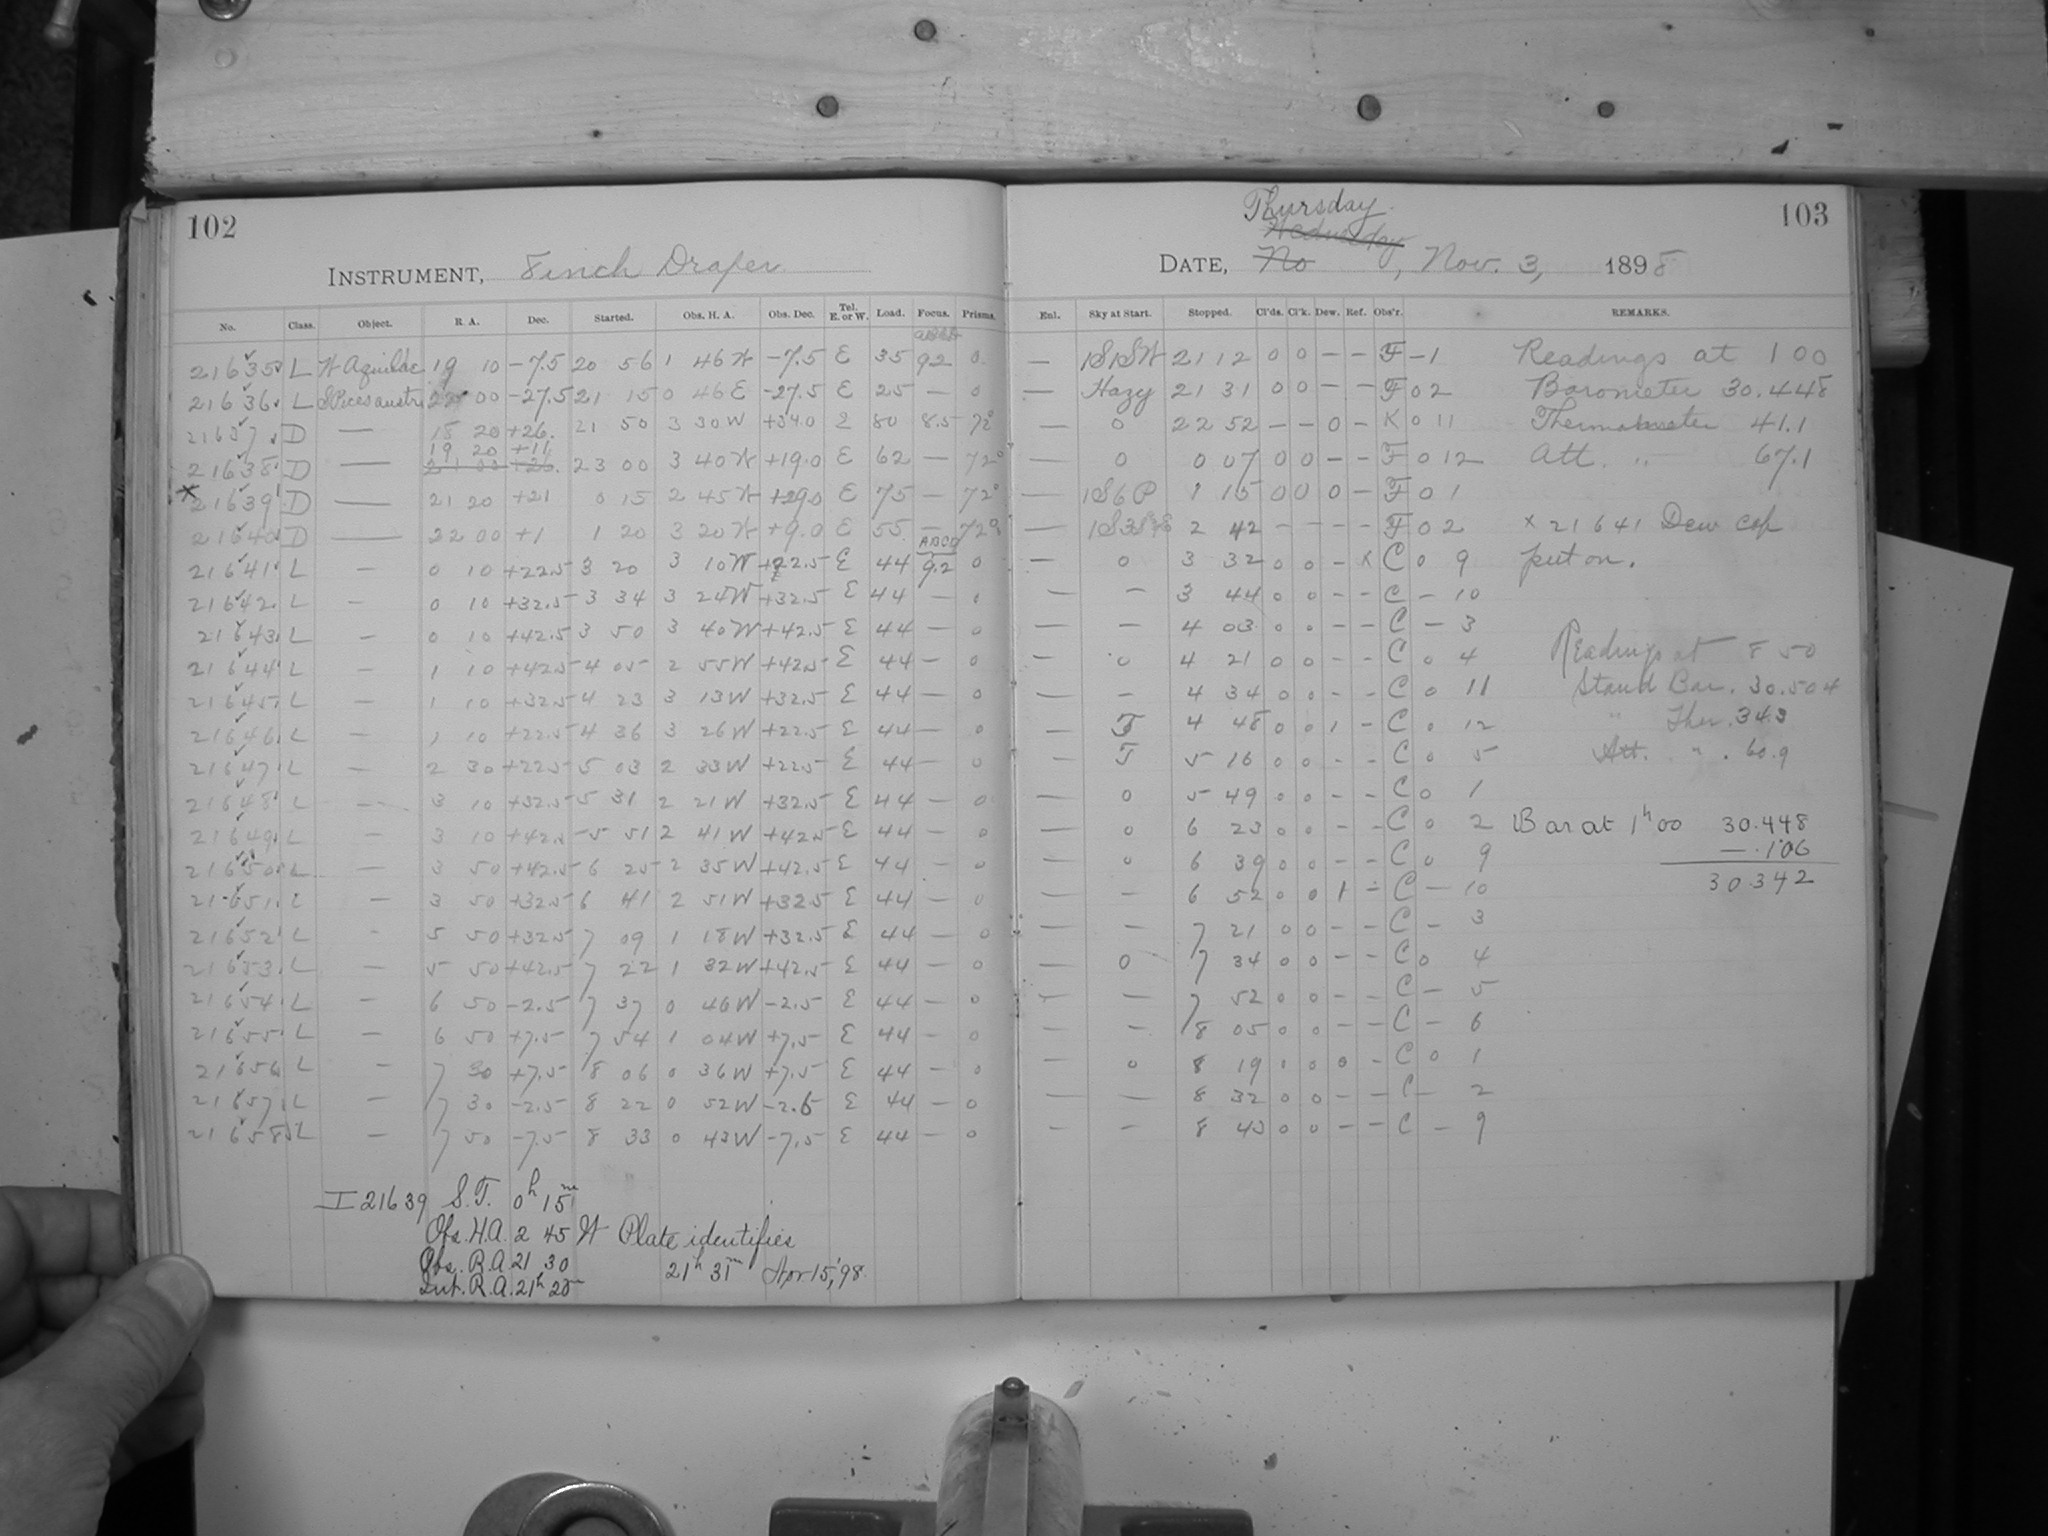 102
INSTRUMENT, 8 inch Draper
No. Class. Object. R. A. Dec. Started. Obs. H. A. Obs. Dec. Tel. E. or W. Load. Focus. Prisms.
21635 L W Aquilae 19 10 -7.5 20 56 1 46 W -7.5 E 35 9.2 0
21636 L 22 00 -27.5 21 15 0 46 E -27.5 E 25 — 0
21637 D — 18 20 +26. 21 50 3 30 W +34.0 E 80 8.5 72°
19 20 +11
21638 D — 23 00 3 40 W +19.0 E 62 — 72°
21639 D — 21 20 +21 0 15 2 45 W +29.0 E 75 — 72°
21640 D — 22 00 +1 1 20 3 20 W +9.0 E 55 — 72°
ABCD
21641 L — 0 10 +22.5 3 20 3 10 W +22.5 E 44 9.2 0
21642 L — 0 10 +32.5 3 34 3 24 W +32.5 E 44 — 0
21643 L — 0 10 +42.5 3 50 3 40 W +42.5 E 44 — 0
21644 L — 1 10 +42.5 4 05 2 55 W +42.5 E 44 — 0
21645 L — 1 10 +32.5 4 23 3 13 W +32.5 E 44 — 0
21646 L — 1 10 +22.5 4 36 3 26 W +22.5 E 44 — 0
21647 L — 2 30 +22.5 5 03 2 33 W +22.5 E 44 — 0
21648 L — 3 10 +32.5 5 31 2 21 W +32.5 E 44 — 0
21649 L — 3 10 +42.5 5 51 2 41 W +42.5 E 44 — 0
21650 L — 3 50 +42.5 6 25 2 35 W +42.5 E 44 — 0
21651 L — 3 50 +32.5 6 41 2 51 W +32.5 E 44 — 0
21652 L - 5 50 +32.5 7 09 1 18 W +32.5 E 44 — 0
21653 L — 5 50 +42.5 7 22 1 32 W +42.5 E 44 — 0
21654 L — 6 50 -2.5 7 37 0 46 W -2.5 E 44 — 0
21655 L — 6 50 +7.5 7 54 1 04 W +7.5 E 44 — 0
21656 L — 7 30 +7.5 8 06 0 36 W +7.5 E 44 — 0
21657 L — 7 30 -2.5 8 22 0 52 W -2.5 E 44 — 0
21658 L — 7 50 -7.5 8 33 0 43 W -7.5 E 44 — 0
I 21639 S.T. 0h 15m
Obs. H.A. 2 45 W Plate identifies
Obs. R.A. 21 30 21h 31m Apr 15, '98
Int. R.A. 21h 20m
103
Thursday
Wednesday
DATE, No, Nov. 3, 1898
Enl. Sky at Start. Stopped. Cl'ds. Cl'k. Dew. Ref. Obs'r. REMARKS.
— 1S1SW 21 12 0 0 — — F - 1 Readings at 1 00
— Hazy 21 31 0 0 — — F 0 2 Barometer 30.448
— 0 22 52 — — 0 - K 0 11 Thermometer 41.1
— 0 0 07 0 0 — — F 0 12 Att. " 67.1
— 1S6P 1 15 0 0 0 — F 0 1
— 2 42 - - - - F 0 2 x 21641 Dew cap
— 0 3 32 0 0 - x C 0 9 put on.
— — 3 44 0 0 - - C - 10
— — 4 03 0 0 - - C - 3
— 0 4 21 0 0 - - C 0 4 Readings at 8 50
— - 4 34 0 0 - - C 0 11 Stand Bar. 30.504
— T 4 48 0 0 1 - C 0 12 " Ther. 34.3
— T 5 16 0 0 - - C 0 5 Att. " . 60.9
— 0 5 49 0 0 - - C 0 1
— 0 6 23 0 0 - - C 0 2 Bar at 1h 00 30.448
— 0 6 39 0 0 - - C 0 9 - .106
— - 6 52 0 0 1 - C - 10 30.342
— — 7 21 0 0 - - C - 3
— 0 7 34 0 0 - - C 0 4
— — 7 52 0 0 - - C - 5
— — 8 05 0 0 - - C - 6
— 0 8 19 0 0 0 - C 0 1
— — 8 32 0 0 - - C - 2
— — 8 43 0 0 - - C - 9